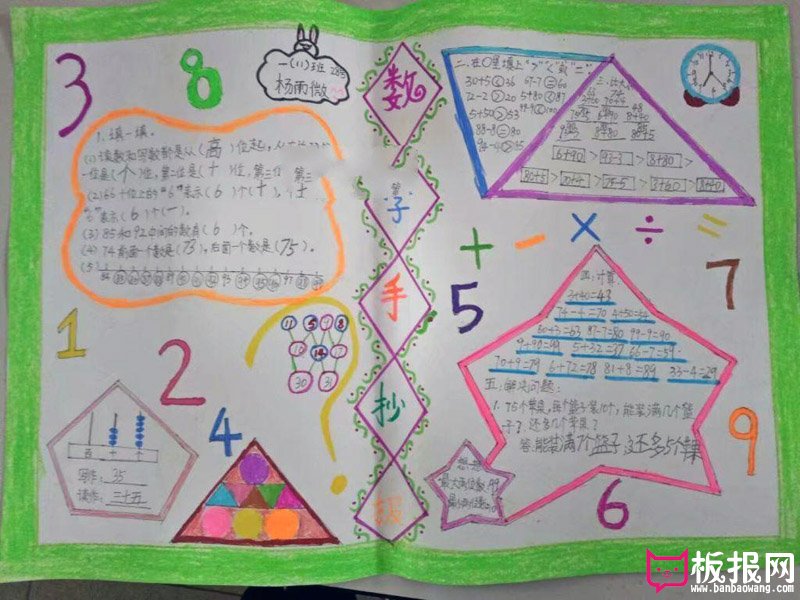 3
8
一(11)班
杨雨微
1、填一填。
(1)读数和写数都是从(高)位起，
一位是(个)位，第二位是(十)位，第三位
(2)66十位上的"6"表示(6)个(十)，
表示(6)个(一)。
(3)85和92中间的数有(6)个。
(4)74前面一个数是(73)，后面一个数是(75)。
(5)
1
2
4
11 5 7 8
14
30 31
百 十 个
写作：35
读作：三十五
数
学
手
抄
报
二、在○里填上">""<"或"="
30+5<36 67-7=60
72-2>20 5+80<87
5+50>53 99-9<100
88-8=80
6+90 > 93-3 > 8+80 >
+ - × ÷ =
5
7
9
6
四、计算：
3+40=43
74-4=70 4+50=54
60+3=63 87-7=80 99-9=90
9+90=99 5+32=37 66-7=59
70+9=79 6+72=78 81+8=89 33-4=29
五、解决问题：
1、75个苹果，每个篮子装10个，能装满几个篮
子？还多几个苹果？
答：能装满7个篮子，还多5个苹果
想一想
最大两位数：99
最小两位数：10
板报网
www.banbaowang.com